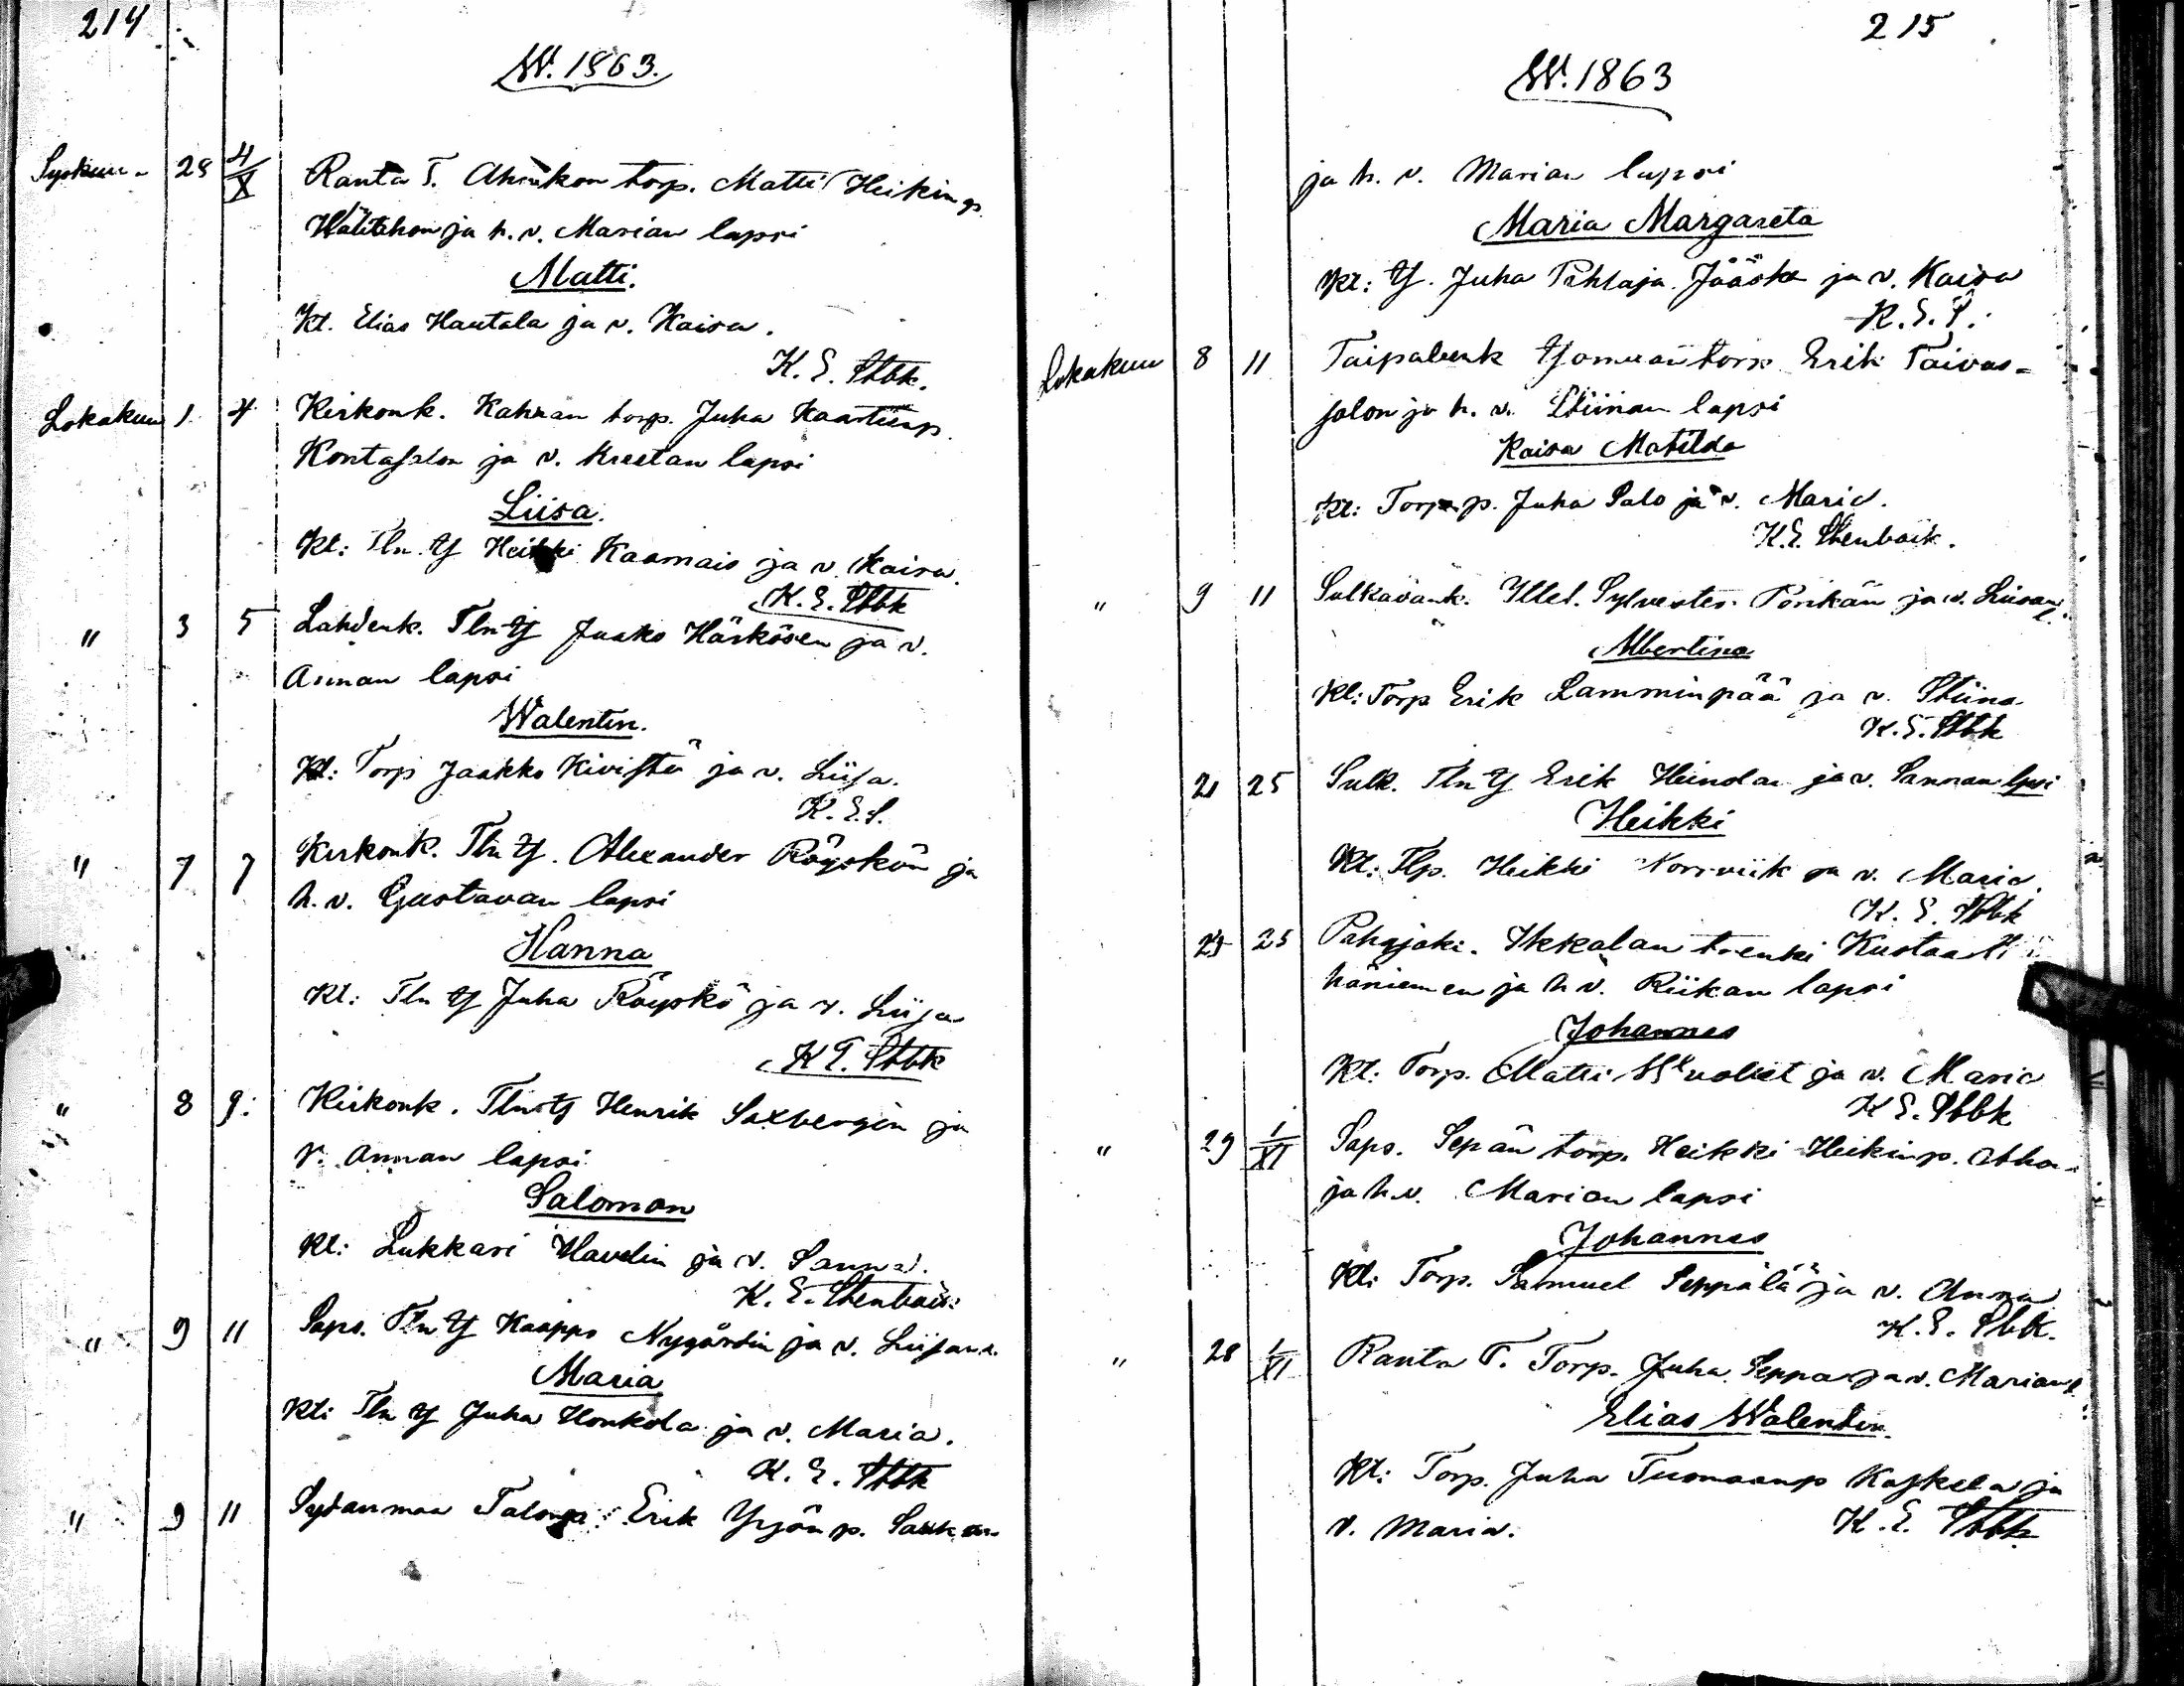 214
W. 1863.
Syskuu 28 4/X Ranta T. torp. Matti Heikinp.
ja h. v. Marian lapsi
Matti.
Kt. Elias Hautala ja v. Kaisa.
K. E. Stbk.
Lokakuu 1 4 Kirkonk. torp. Juha
ja v. Kreetan lapsi
Liisa.
Kt: Tln Y Heikki ja v. Kaisa.
K. E. Stbk
" 3 5 Lahdenk. Tln Y Jaako Härkösen ja v.
Annan lapsi
Walentin.
Kt: Torp Jaakko Kivistö ja v. Liisa.
K. E. S.
" 7 7 Kirkonk. Tln Y. Alexander Röyskön ja
h. v. Gustavan lapsi
Hanna
Kt: Tln Y Juha Röyskö ja v. Liisa
K E. Stbk
" 8 9: Kirkonk. Tln Y Henrik Saxbergin ja
v. Annan lapsi
Salomon
Kt: Lukkari Havelin ja v. Sanna.
K. E. Stenbäck
" 9 11 Saps. Tln Y Kaappo Nygårdin ja v. Liisan l.
Maria
Kt: Tln Y Juha Honkola ja v. Maria.
K. E. Stbk
" 9 11 Sydänmaa Erik Yrjön p.
215
W. 1863
ja h. v. Marian lapsi
Maria Margareta
Kt: Y. Juha Pihlaja Jääskä ja v. Kaisa
K. E. S.
Lokakuu 8 11 Taipalenk torp Erik Taivas=
salon ja h. v. Stiinan lapsi
Kaisa Matilda
Kt: Torp. p. Juha Salo ja v. Maria.
K. E. Stenbäck.
" 9 11 Sulkavank. Sylvester ja v. Liisan l.
Albertina
Kt: Torp Erik Lamminpää ja v. Stiina
K. E. Stbk
21 25 Sulk. Tln Y Erik ja v. Sannan lpsi
Heikki
Kt: Tlp. Heikki Norrviik ja v. Maria.
K. E. Stbk
25 Pahajoki. Ikkalan trenki Kustaa
häniemen ja h v. Riikan lapsi
Johannes
Kt: Torp. Matti ja v. Maria
K E. Stbk
" 29 1/XI Saps. Sepän torp. Heikki Heikinp.
ja h. v. Marian lapsi
Johannes
Kt: Torp. Samuel Seppälä ja v. Anna
K. E. Stbk.
" 28 1/XI Ranta T. Torp. Juha ja v. Marian l.
Elias Walentin.
Kt: Torp. Juha Tuomaanp Koskela ja
v. Maria.
K. E. Stbk